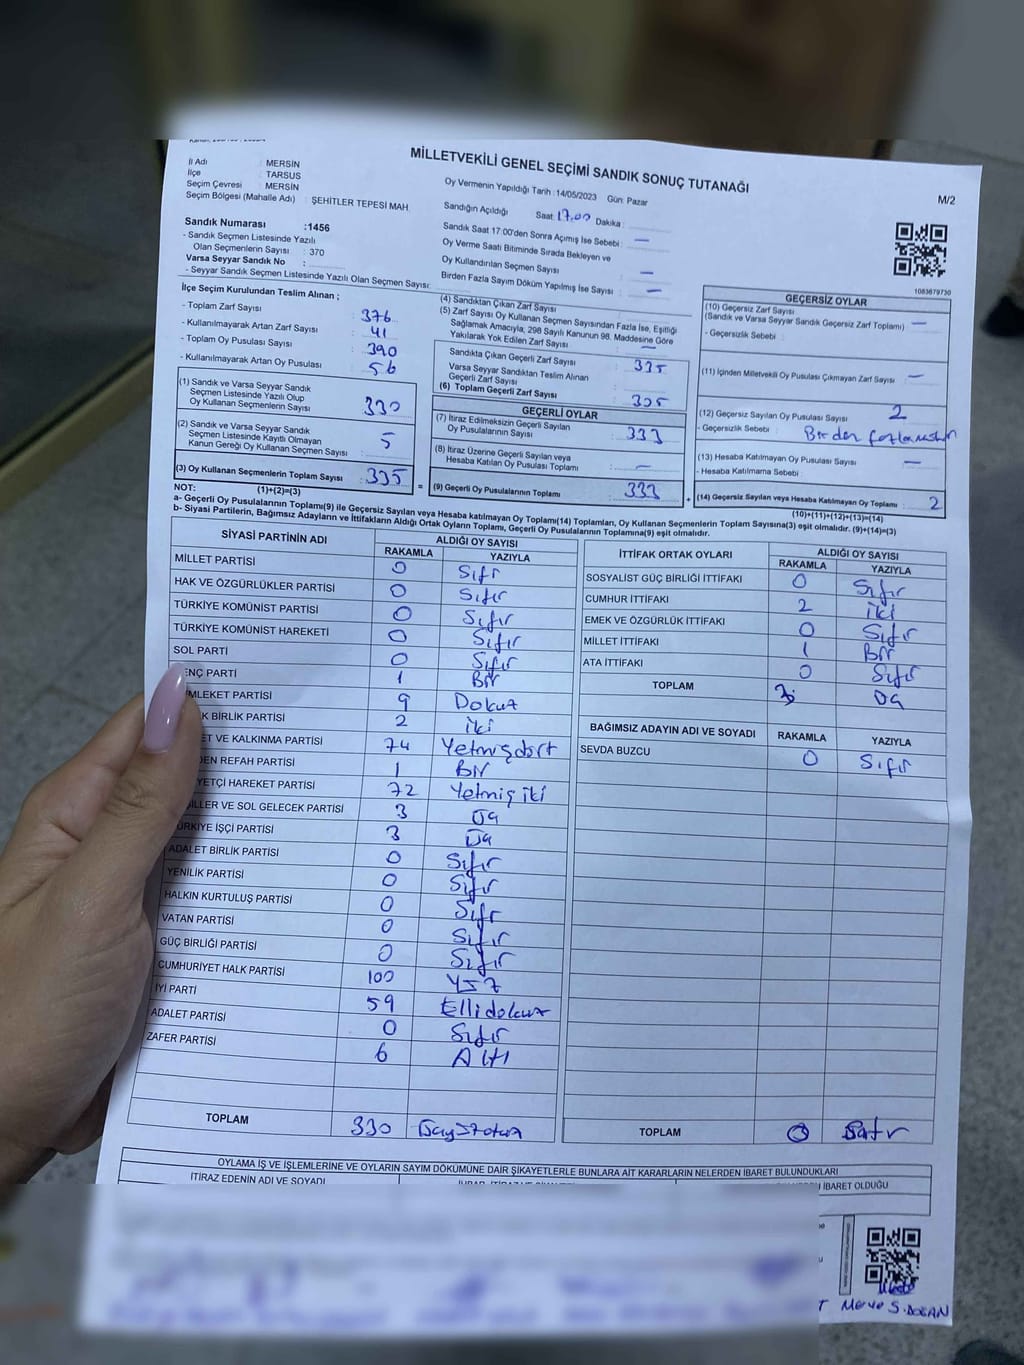 MİLLETVEKİLİ GENEL SEÇİMİ SANDIK SONUÇ TUTANAĞI
M/2
İl Adı : MERSİN
İlçe : TARSUS
Seçim Çevresi : MERSİN
Seçim Bölgesi (Mahalle Adı) : ŞEHİTLER TEPESİ MAH.
Sandık Numarası :1456
- Sandık Seçmen Listesinde Yazılı
Olan Seçmenlerin Sayısı : 370
Varsa Seyyar Sandık No :
- Seyyar Sandık Seçmen Listesinde Yazılı Olan Seçmen Sayısı:
Oy Vermenin Yapıldığı Tarih :14/05/2023 Gün: Pazar
Sandığın Açıldığı Saat: 17.00 Dakika :
Sandık Saat 17:00'den Sonra Açımış İse Sebebi : —
Oy Verme Saati Bitiminde Sırada Bekleyen ve
Oy Kullandırılan Seçmen Sayısı : —
Birden Fazla Sayım Döküm Yapılmış İse Sayısı : —
1083679730
İlçe Seçim Kurulundan Teslim Alınan ;
- Toplam Zarf Sayısı : 376
- Kullanılmayarak Artan Zarf Sayısı : 41
- Toplam Oy Pusulası Sayısı : 390
- Kullanılmayarak Artan Oy Pusulası : 56
(1) Sandık ve Varsa Seyyar Sandık
Seçmen Listesinde Yazılı Olup
Oy Kullanan Seçmenlerin Sayısı : 330
(2) Sandık ve Varsa Seyyar Sandık
Seçmen Listesinde Kayıtlı Olmayan
Kanun Gereği Oy Kullanan Seçmen Sayısı : 5
(3) Oy Kullanan Seçmenlerin Toplam Sayısı : 335
(4) Sandıktan Çıkan Zarf Sayısı
(5) Zarf Sayısı Oy Kullanan Seçmen Sayısından Fazla İse, Eşitliği
Sağlamak Amacıyla, 298 Sayılı Kanunun 98. Maddesine Göre
Yakılarak Yok Edilen Zarf Sayısı : —
Sandıkta Çıkan Geçerli Zarf Sayısı : 335
Varsa Seyyar Sandıktan Teslim Alınan
Geçerli Zarf Sayısı
(6) Toplam Geçerli Zarf Sayısı : 335
GEÇERLİ OYLAR
(7) İtiraz Edilmeksizin Geçerli Sayılan
Oy Pusulalarının Sayısı : 333
(8) İtiraz Üzerine Geçerli Sayılan veya
Hesaba Katılan Oy Pusulası Toplamı : —
= (9) Geçerli Oy Pusulalarının Toplamı : 333
GEÇERSİZ OYLAR
(10) Geçersiz Zarf Sayısı
(Sandık ve Varsa Seyyar Sandık Geçersiz Zarf Toplamı) : —
- Geçersizlik Sebebi :
(11) İçinden Milletvekili Oy Pusulası Çıkmayan Zarf Sayısı : —
(12) Geçersiz Sayılan Oy Pusulası Sayısı : 2
- Geçersizlik Sebebi :
(13) Hesaba Katılmayan Oy Pusulası Sayısı : —
- Hesaba Katılmama Sebebi :
+ (14) Geçersiz Sayılan veya Hesaba Katılmayan Oy Pusulası Toplamı : 2
NOT: (1)+(2)=(3) (10)+(11)+(12)+(13)=(14)
a- Geçerli Oy Pusulalarının Toplamı(9) ile Geçersiz Sayılan veya Hesaba Katılmayan Oy Toplamı(14) Toplamları, Oy Kullanan Seçmenlerin Toplam Sayısına(3) eşit olmalıdır. (9)+(14)=(3)
b- Siyasi Partilerin, Bağımsız Adayların ve İttifakların Aldığı Ortak Oyların Toplamı, Geçerli Oy Pusulalarının Toplamına(9) eşit olmalıdır.
SİYASİ PARTİNİN ADI ALDIĞI OY SAYISI
RAKAMLA YAZIYLA
MİLLET PARTİSİ 0 Sıfır
HAK VE ÖZGÜRLÜKLER PARTİSİ 0 Sıfır
TÜRKİYE KOMÜNİST PARTİSİ 0 Sıfır
TÜRKİYE KOMÜNİST HAREKETİ 0 Sıfır
SOL PARTİ 0 Sıfır
ENÇ PARTİ 1 Bir
MLEKET PARTİSİ 9 Dokuz
K BİRLİK PARTİSİ 2 iki
ET VE KALKINMA PARTİSİ 74 Yetmişdört
DEN REFAH PARTİSİ 1 Bir
YETÇİ HAREKET PARTİSİ 72 Yetmiş iki
İLLER VE SOL GELECEK PARTİSİ 3 Üç
ÜRKİYE İŞÇİ PARTİSİ 3 Üç
ADALET BİRLİK PARTİSİ 0 Sıfır
YENİLİK PARTİSİ 0 Sıfır
HALKIN KURTULUŞ PARTİSİ 0 Sıfır
VATAN PARTİSİ 0 Sıfır
GÜÇ BİRLİĞİ PARTİSİ 0 Sıfır
CUMHURİYET HALK PARTİSİ 100 Yüz
İYİ PARTİ 59 Ellidokuz
ADALET PARTİSİ 0 Sıfır
ZAFER PARTİSİ 6 Altı
TOPLAM 330 Üçyüzotuz
İTTİFAK ORTAK OYLARI ALDIĞI OY SAYISI
RAKAMLA YAZIYLA
SOSYALİST GÜÇ BİRLİĞİ İTTİFAKI 0 Sıfır
CUMHUR İTTİFAKI 2 iki
EMEK VE ÖZGÜRLÜK İTTİFAKI 0 Sıfır
MİLLET İTTİFAKI 1 Bir
ATA İTTİFAKI 0 Sıfır
TOPLAM 3 Üç
BAĞIMSIZ ADAYIN ADI VE SOYADI RAKAMLA YAZIYLA
SEVDA BUZCU 0 Sıfır
TOPLAM 0 Sıfır
OYLAMA İŞ VE İŞLEMLERİNE VE OYLARIN SAYIM DÖKÜMÜNE DAİR ŞİKAYETLERLE BUNLARA AİT KARARLARIN NELERDEN İBARET BULUNDUKLARI
İTİRAZ EDENİN ADI VE SOYADI
İBARET OLDUĞU
Merve S. DOĞAN